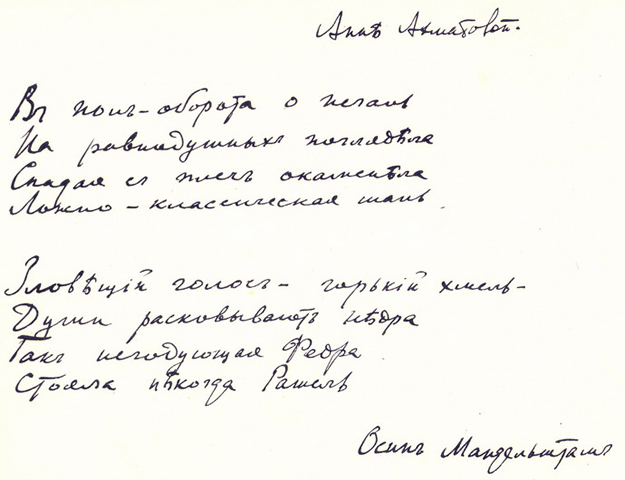 Аннѣ Ахматовой.
Въ полъ-оборота о печаль
На равнодушныхъ поглядѣла
Спадая съ плечъ окаменѣла
Ложно-классическая шаль.
Зловѣщій голосъ- горькій хмель-
Души расковываетъ нѣдра
Такъ негодующая Федра
Стояла нѣкогда Рашель
Осипъ Мандельштамъ